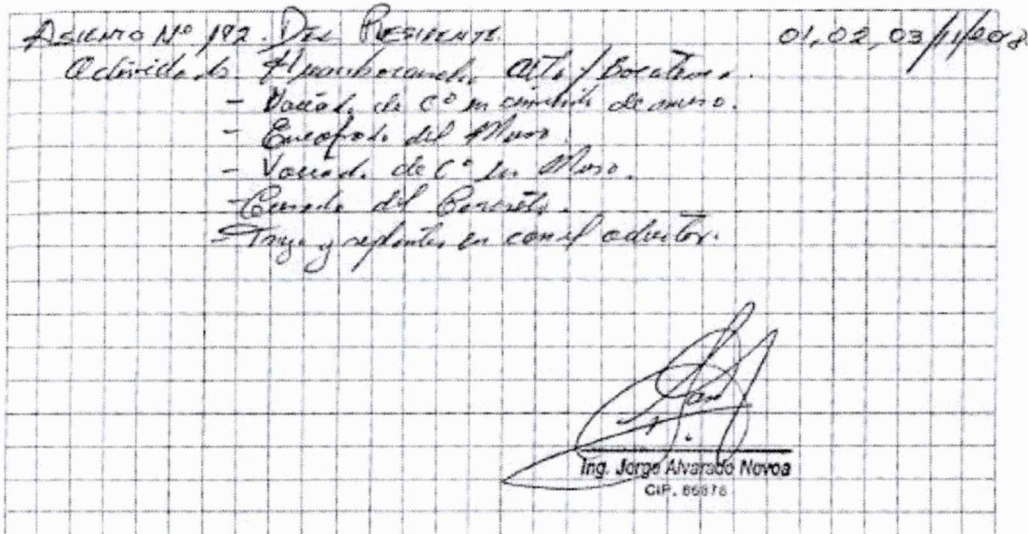 Asiento Nº 192. Del Residente. 01,02,03/11/2008
Actividades Alto / Bocatoma.
- Vaciado de Cº en cimiento de muro.
- Encofrado del Muro.
- Vaciado de Cº en Muro.
- Curado del Concreto.
- Trazo y replanteo en canal aductor.
Ing. Jorge Alvarado Novoa
CIP.